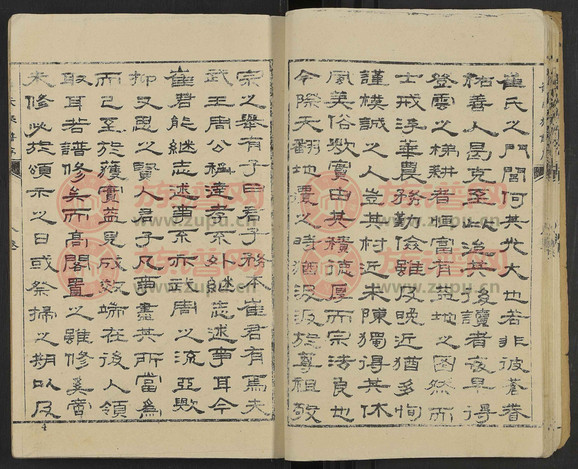 崔氏之門閭何其光大也若非彼蒼眷
祐善人曷克至此治其後讀者袞早得
登雲之梯耕者恒富有益地之図然而
士戒浮華農務勤儉雖皮晚近猶多恂
謹樸誠之人豈其村近朱陳獨得其休
風美俗歟實由其積德厚而宗法良也
今際天翻地覆之時猶汲汲於尊祖敬
宗之舉有子曰君子務本崔君有焉夫
武王周公稱達孝不外繼志述事耳今
崔君能繼志述事亦武周之流亞歟
抑又思之賢人君子凡事盡其所當為
而已至於獲實益見成效端在後人領
取耳若譜修矣而高閣置之雖修奚啻
未修必於頒示之日或祭掃之期以及
族譜网
www.zupu.cn
族譜网
www.zupu.cn